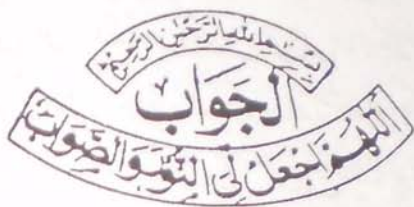 بسم الله الرحمن الرحيم
الجَوَاب
اَللّٰهُمَّ اجْعَلْ لِیَ النُّوْرَ وَالصَّوَابَ